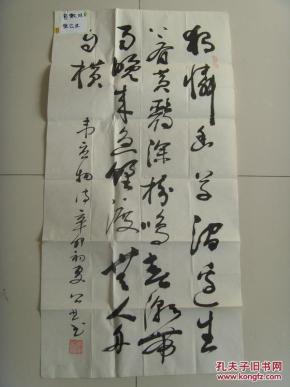 独憐幽草澗邊生
上有黄鸝深樹鳴春潮帶
雨晚来急野渡無人舟
自横
韦应物诗辛卯初夏
孔夫子旧书网